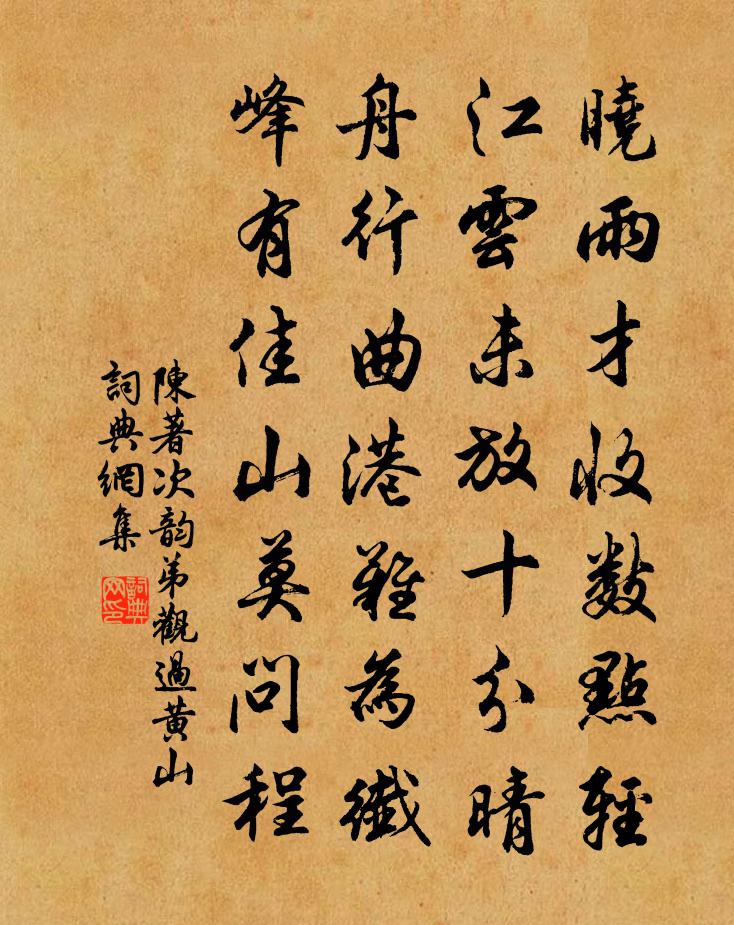 曉雨才收數點輕
江雲未放十分晴
舟行曲港難為纖
峰有佳山莫問程
陳著次韵弟觀過黄山
詞典網集
詞典网印